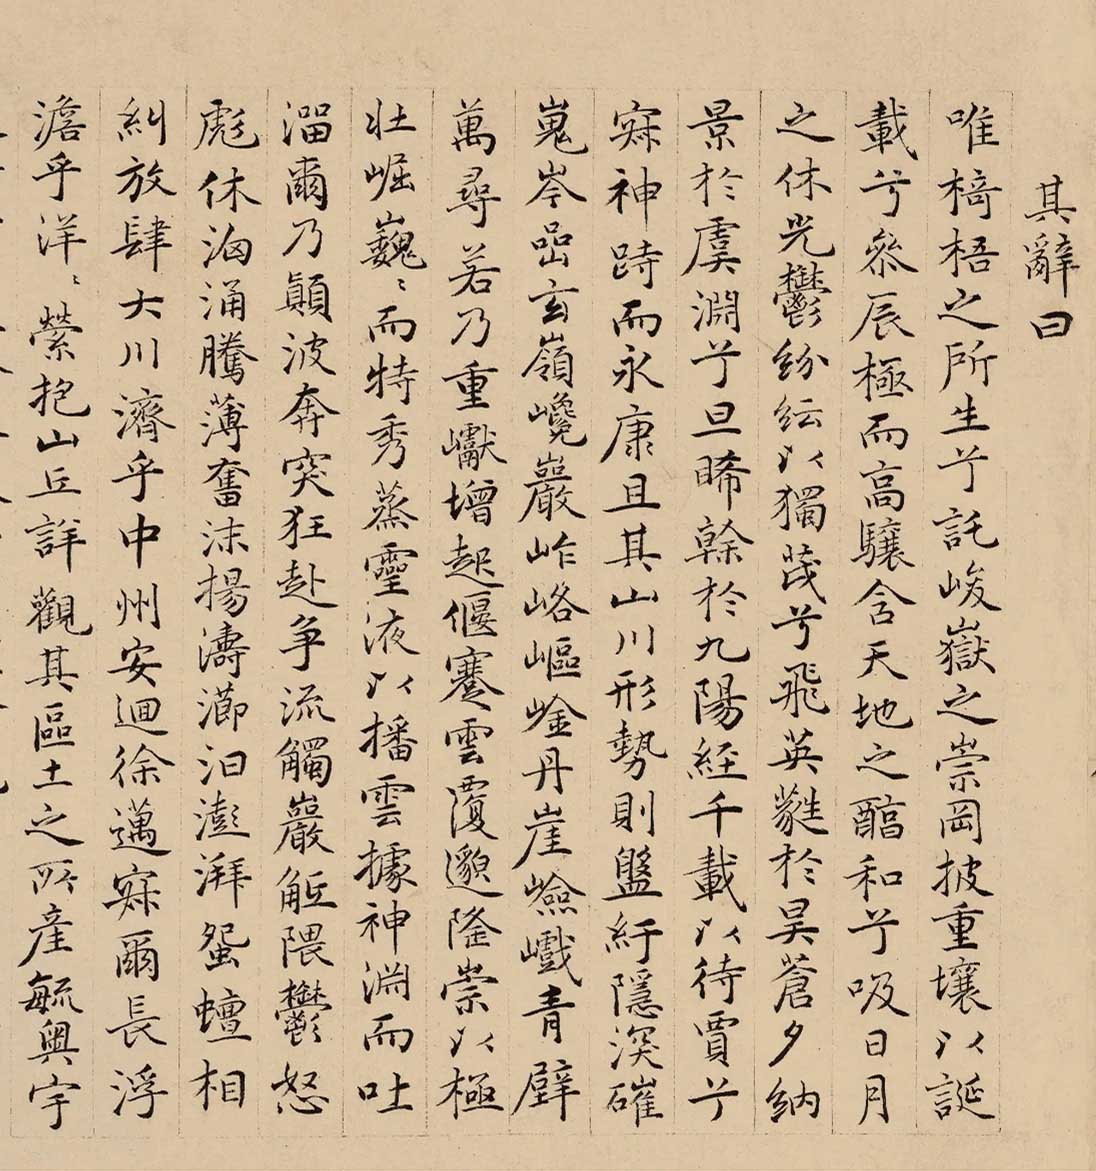 其辭曰
唯椅梧之所生兮託峻嶽之崇岡披重壤以誕
載兮叅辰極而高驤含天地之醕和兮吸日月
之休光鬱紛紜以獨茂兮飛英蕤於昊蒼夕納
景於虞淵兮旦晞幹於九陽經千載以待賈兮
寂神跱而永康且其山川形勢則盤紆隱深磪
嵬岑嵒玄嶺巉巖岞峈嶇崯丹崖嶮巇青壁
萬尋若乃重巘增起偃蹇雲覆邈隆崇以極
壯崛巍〻而特秀蒸靈液以播雲據神淵而吐
溜爾乃顛波奔突狂赴爭流觸巖觝隈鬱怒
彪休洶涌騰薄奮沫揚濤瀄汩澎湃蜿蟺相
糾放肆大川濟乎中州安迴徐邁寂爾長浮
澹乎洋〻縈抱山丘詳觀其區土之所產毓奧宇